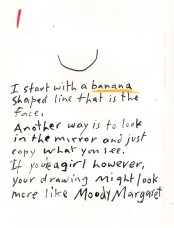 1
I start with a banana
shaped line that is the
face.
Another way is to look
in the mirror and just
copy what you see.
If you're a girl however,
your drawing might look
more like Moody Margaret